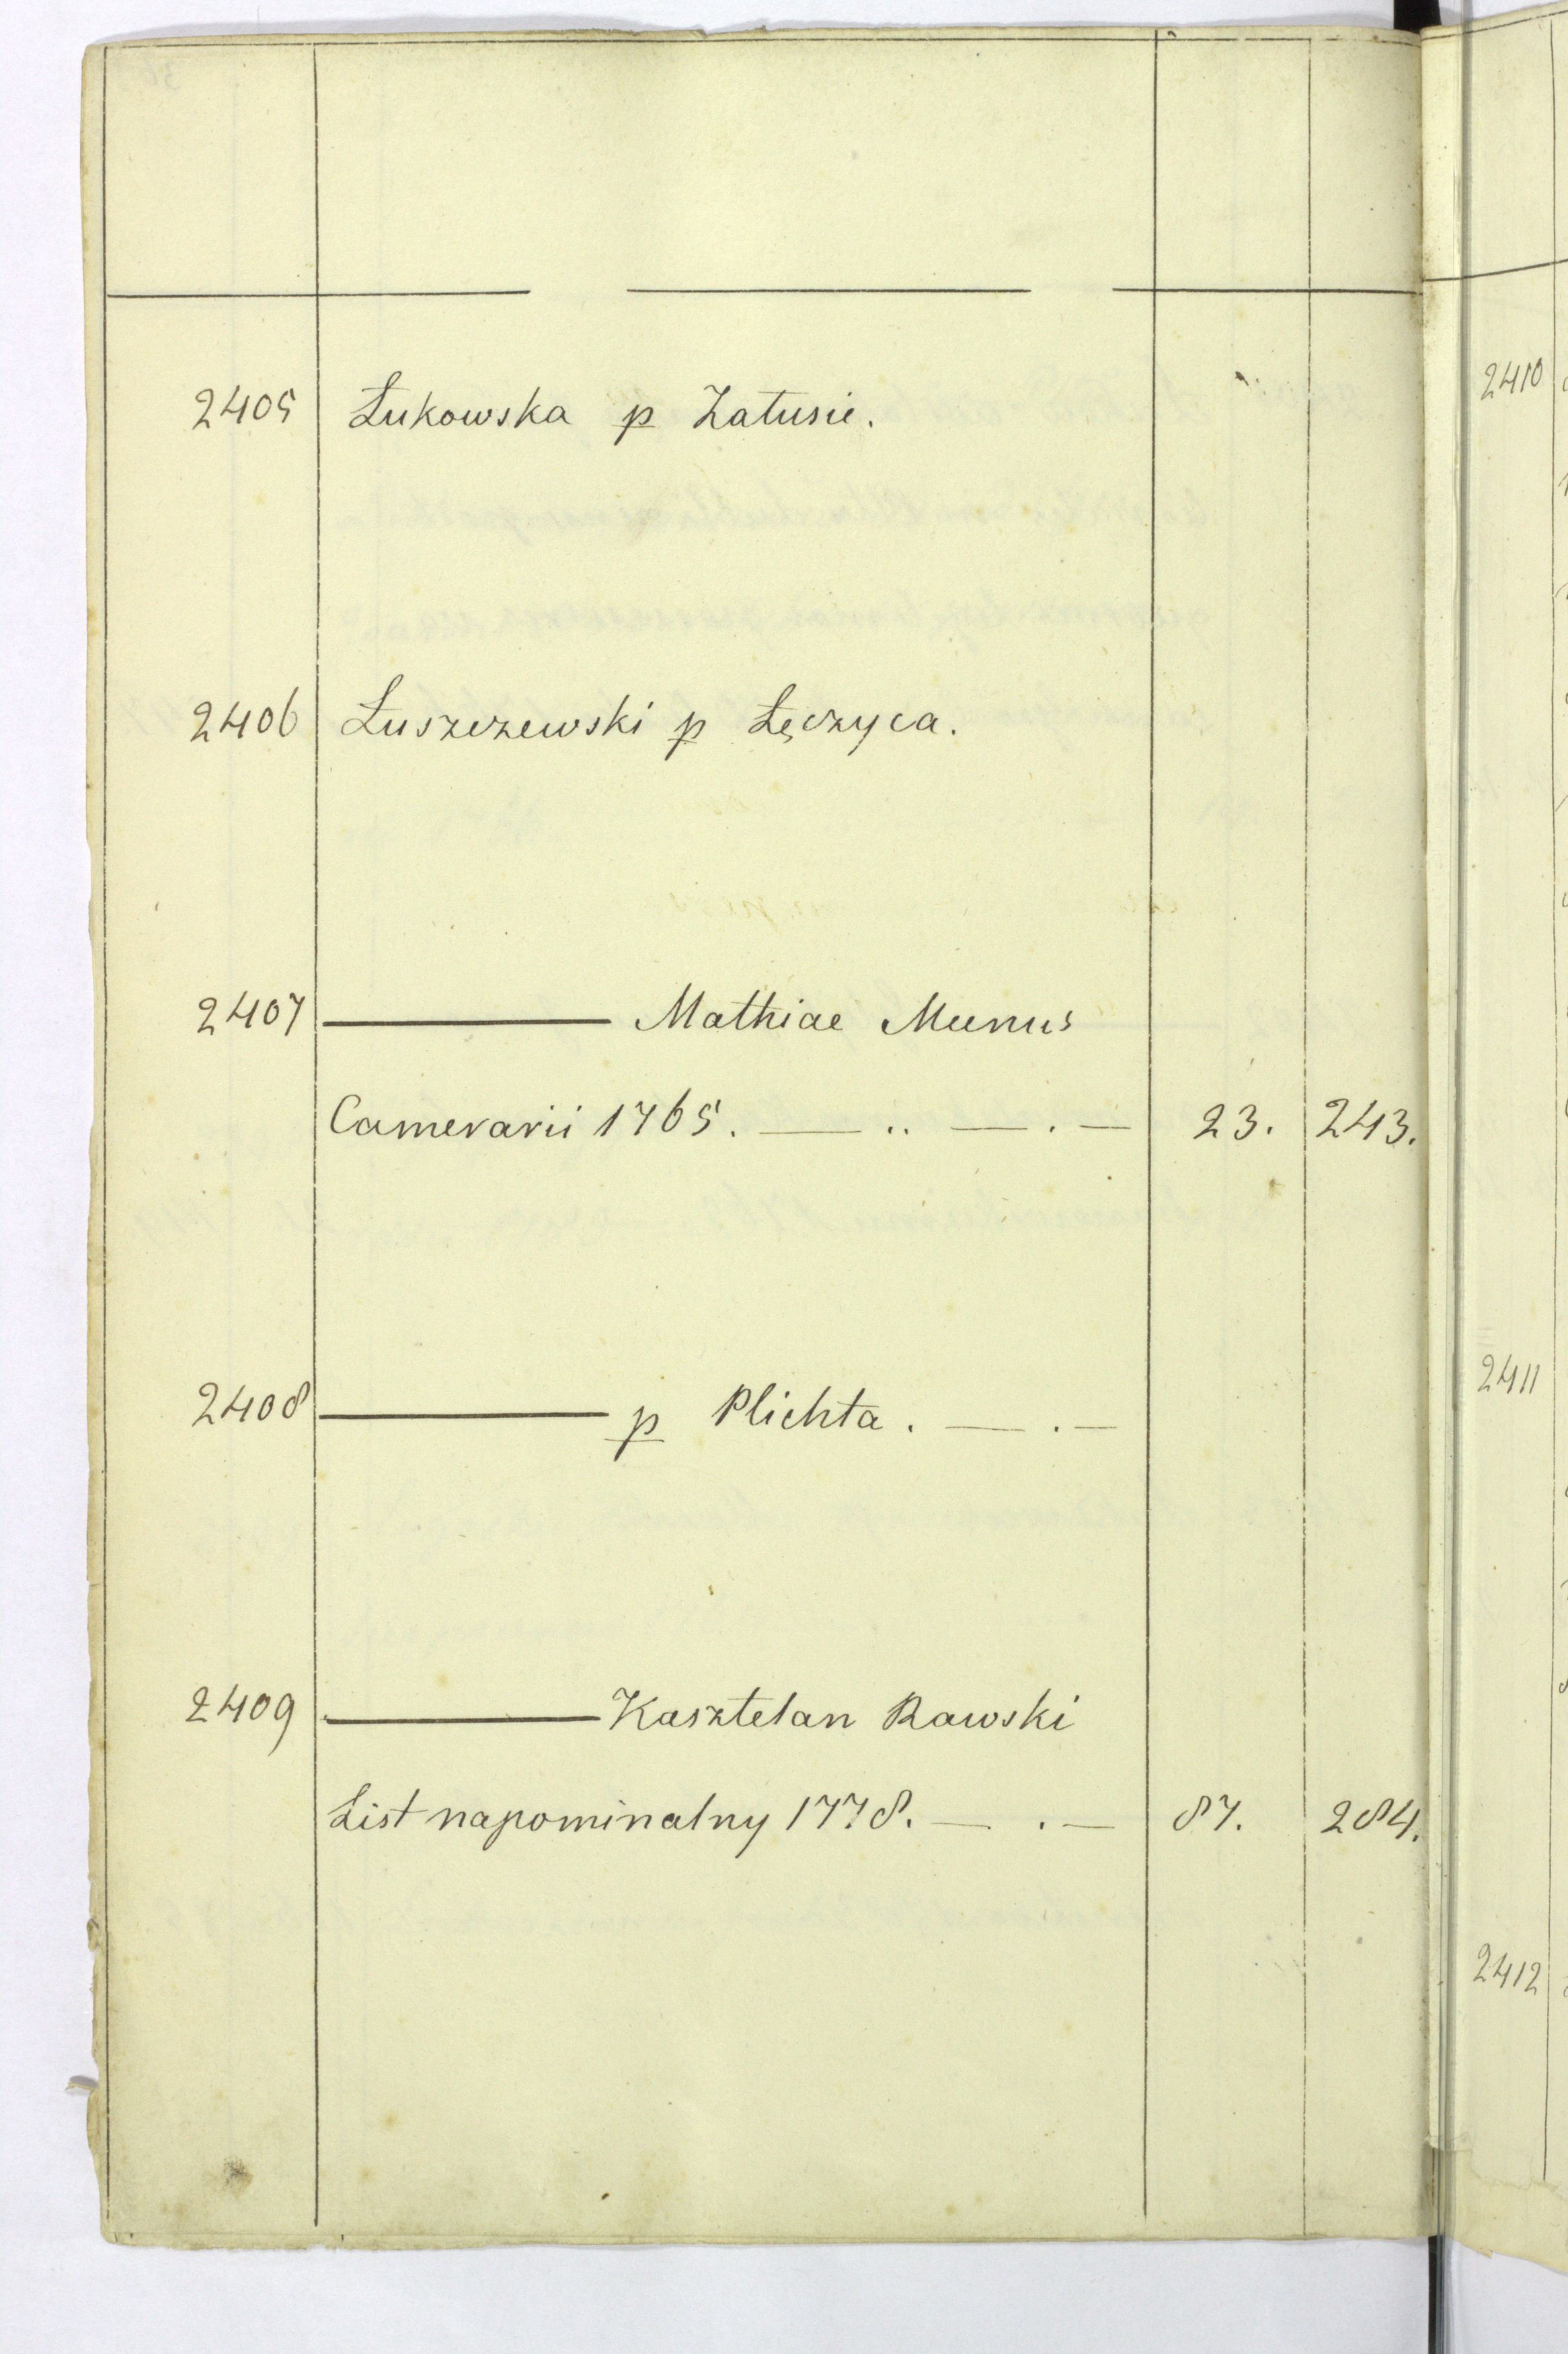 2405 Łukowska p Załusie.
2406 Łuszczewski p Łęczyca.
2407 ——— Mathiae Munus
Camerarii 1765. — .. — . — 23. 243.
2408 ——— p Plichta. — . —
2409 ——— Kasztelan Rawski
List napominalny 1778. — . — 87. 284.
2410
2411
2412